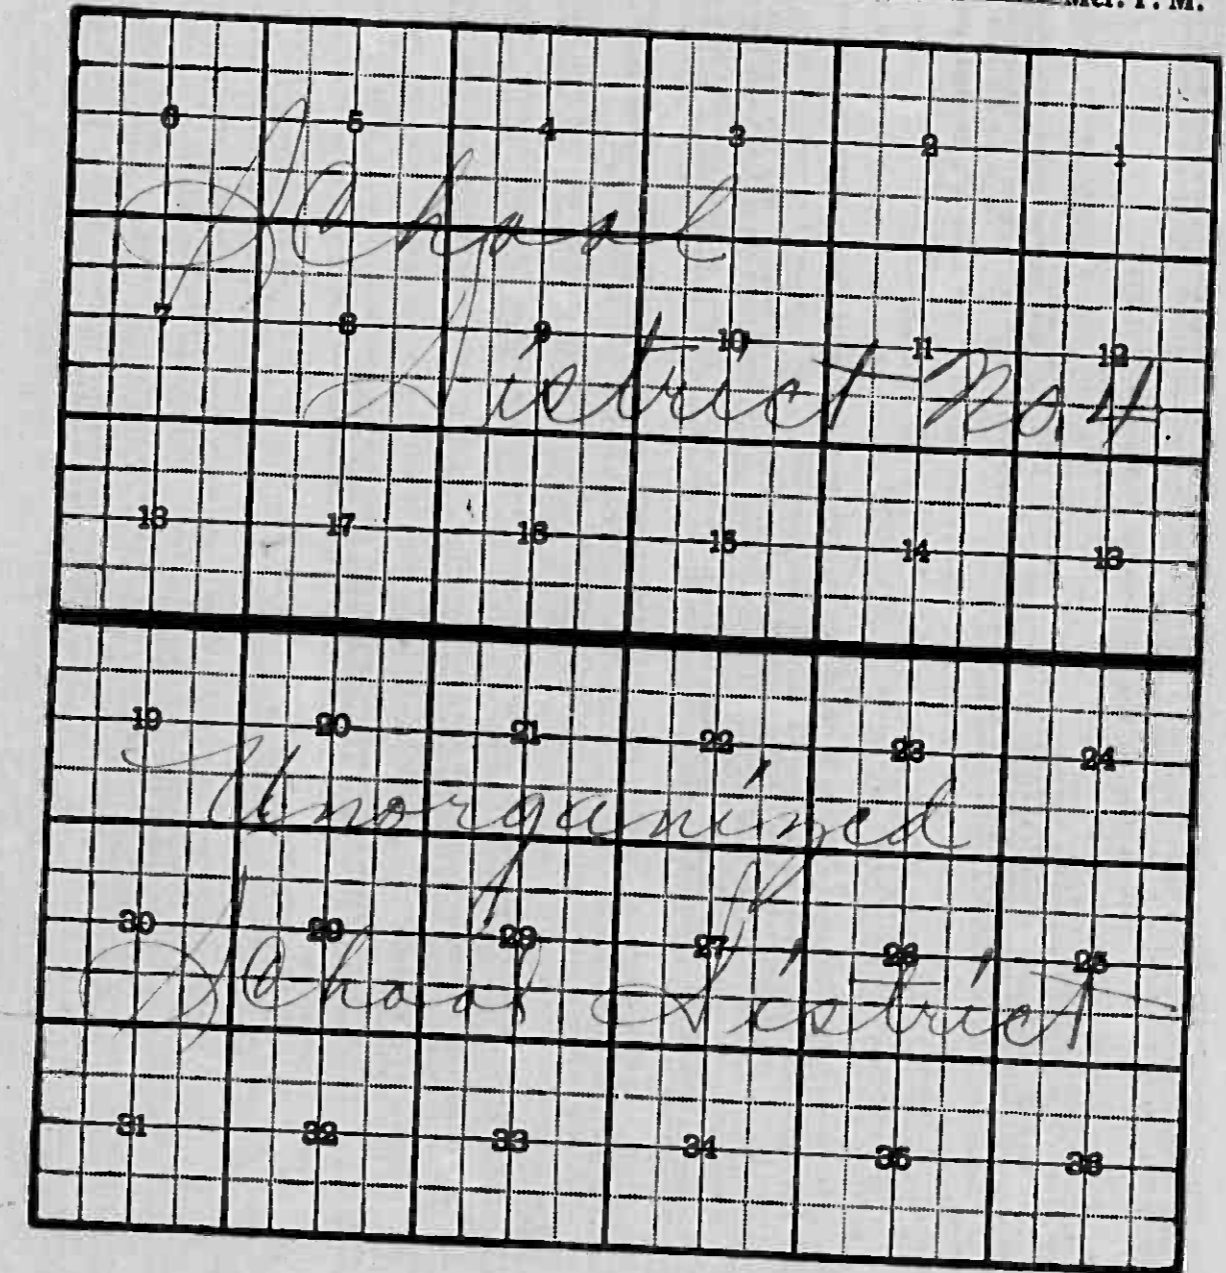 Mer. P. M.
6 5 4 3 2 1
School
7 8 9 10 11 12
District No 4
18 17 16 15 14 13
19 20 21 22 23 24
Unorganized
30 29 28 27 26 25
School District
31 32 33 34 35 36